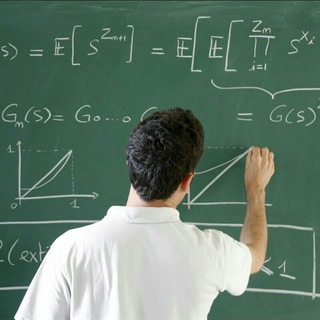 s) = 𝔼[ S^{Z_{m+1}} ] = 𝔼[ 𝔼[ ∏_{i=1}^{Z_m} S^{X_i}
G_m(s) = G o ... o G = G(s)
1 1
0 1
(exti ≤ 1